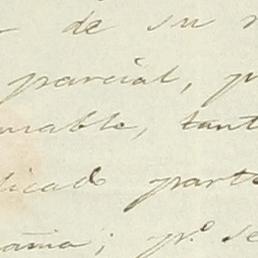 de su
parcial, p
mable, tant
licado parte
aña; p.º se